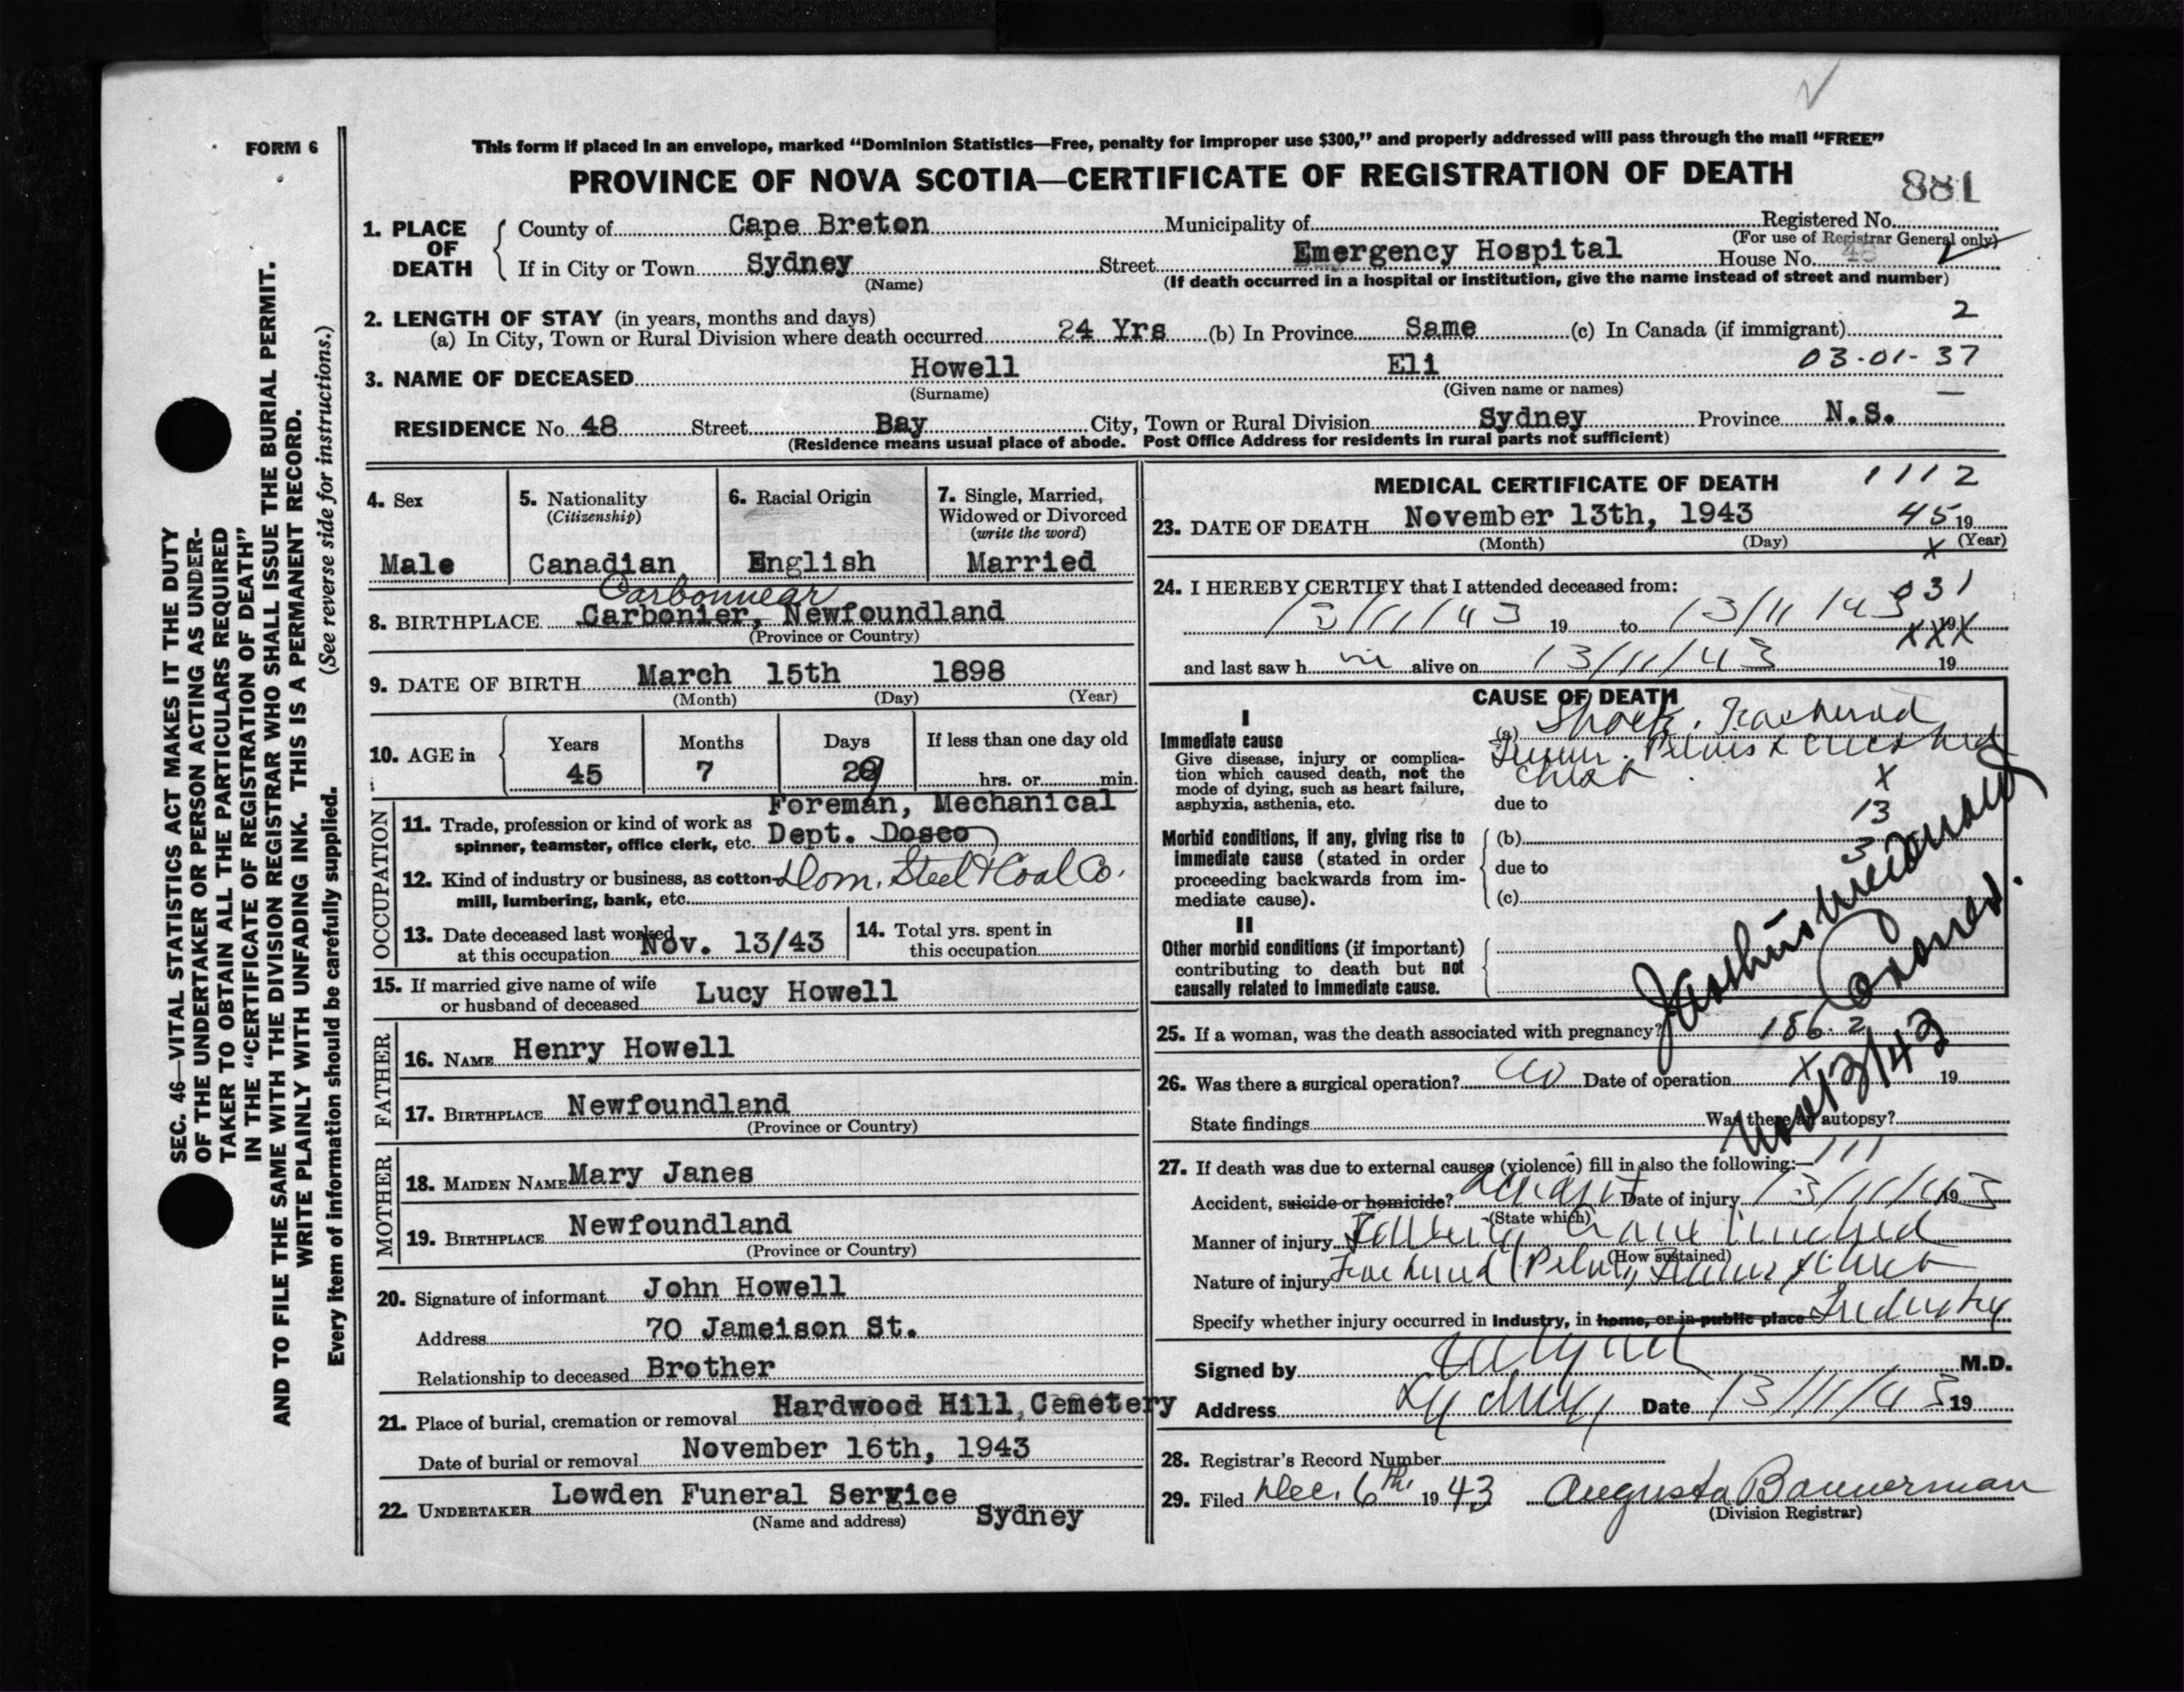 FORM 6
This form if placed in an envelope, marked “Dominion Statistics—Free, penalty for improper use $300,” and properly addressed will pass through the mail “FREE”
PROVINCE OF NOVA SCOTIA—CERTIFICATE OF REGISTRATION OF DEATH
881
SEC. 46—VITAL STATISTICS ACT MAKES IT THE DUTY
OF THE UNDERTAKER OR PERSON ACTING AS UNDER-
TAKER TO OBTAIN ALL THE PARTICULARS REQUIRED
IN THE “CERTIFICATE OF REGISTRATION OF DEATH”
AND TO FILE THE SAME WITH THE DIVISION REGISTRAR WHO SHALL ISSUE THE BURIAL PERMIT.
WRITE PLAINLY WITH UNFADING INK. THIS IS A PERMANENT RECORD.
Every item of information should be carefully supplied. (See reverse side for instructions.)
1. PLACE OF DEATH
County of Cape Breton Municipality of Registered No.
(For use of Registrar General only)
If in City or Town Sydney Street Emergency Hospital House No. 48
(Name) (If death occurred in a hospital or institution, give the name instead of street and number)
2. LENGTH OF STAY (in years, months and days) 2
(a) In City, Town or Rural Division where death occurred 24 Yrs (b) In Province Same (c) In Canada (if immigrant)
3. NAME OF DECEASED Howell Eli 03-01-37
(Surname) (Given name or names)
RESIDENCE No. 48 Street Bay City, Town or Rural Division Sydney Province N.S.
(Residence means usual place of abode. Post Office Address for residents in rural parts not sufficient)
4. Sex
Male
5. Nationality
(Citizenship)
Canadian
6. Racial Origin
English
7. Single, Married,
Widowed or Divorced
(write the word)
Married
Carbonnear
8. BIRTHPLACE Carbonier, Newfoundland
(Province or Country)
9. DATE OF BIRTH March 15th 1898
(Month) (Day) (Year)
10. AGE in
Years Months Days If less than one day old
45 7 29 hrs. or min.
OCCUPATION
11. Trade, profession or kind of work as Foreman, Mechanical
spinner, teamster, office clerk, etc. Dept. Dosco
12. Kind of industry or business, as cotton- Dom. Steel & Coal Co.
mill, lumbering, bank, etc.
13. Date deceased last worked
at this occupation Nov. 13/43
14. Total yrs. spent in
this occupation
15. If married give name of wife
or husband of deceased Lucy Howell
FATHER
16. NAME Henry Howell
17. BIRTHPLACE Newfoundland
(Province or Country)
MOTHER
18. MAIDEN NAME Mary Janes
19. BIRTHPLACE Newfoundland
(Province or Country)
20. Signature of informant John Howell
Address 70 Jameison St.
Relationship to deceased Brother
21. Place of burial, cremation or removal Hardwood Hill Cemetery
Date of burial or removal November 16th, 1943
22. UNDERTAKER Lowden Funeral Service
(Name and address) Sydney
MEDICAL CERTIFICATE OF DEATH 1112
23. DATE OF DEATH November 13th, 1943 45 19
(Month) (Day) X (Year)
24. I HEREBY CERTIFY that I attended deceased from: 931
13/11/43 19 to 13/11/43 19
XXX
and last saw h im alive on 13/11/43 19
CAUSE OF DEATH
I
Immediate cause
Give disease, injury or complica-
tion which caused death, not the
mode of dying, such as heart failure,
asphyxia, asthenia, etc.
(a) Shock. Fractured
Femur. Pelvis & crushed
chest
due to
X
13
3
Morbid conditions, if any, giving rise to
immediate cause (stated in order
proceeding backwards from im-
mediate cause).
(b)
due to
(c)
II
Other morbid conditions (if important)
contributing to death but not
causally related to immediate cause.
Coroner.
Nov 13/43
25. If a woman, was the death associated with pregnancy? 186.2
26. Was there a surgical operation? no Date of operation X 19
State findings Was there an autopsy?
27. If death was due to external causes (violence) fill in also the following:— 111
Accident, suicide or homicide? accident Date of injury 13/11/43 19
(State which)
Manner of injury Falling Crane
(How sustained)
Nature of injury Fractured Pelvis, Femur, chest
Specify whether injury occurred in Industry, in home, or in public place Industry
Signed by M.D.
Address Sydney Date 13/11/43 19
28. Registrar's Record Number
29. Filed Dec. 6th. 1943 Augusta Bannerman
(Division Registrar)